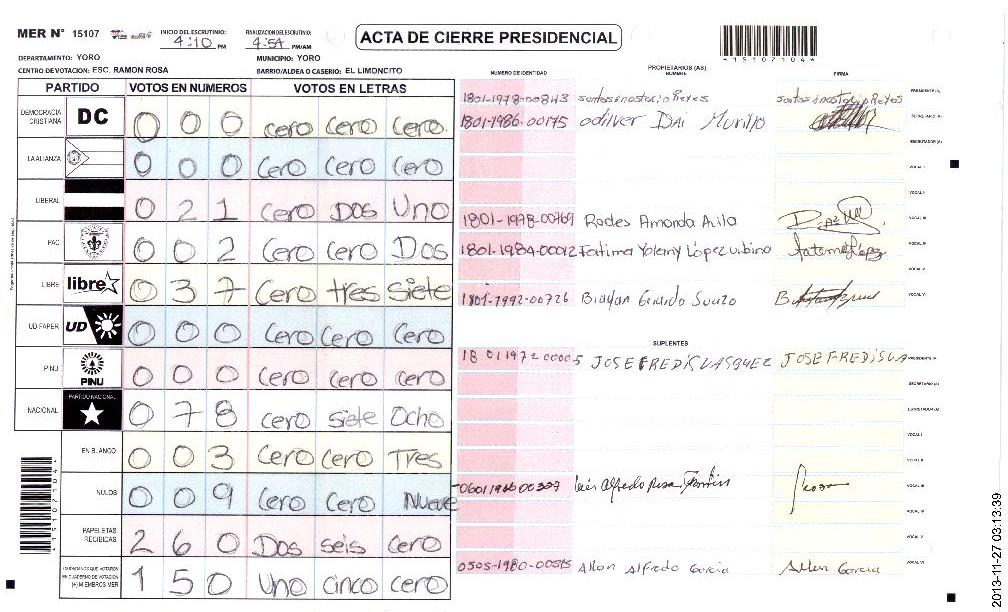 MER N° 15107
INICIO DEL ESCRUTINIO: 4:10 PM
FINALIZACION DEL ESCRUTINIO: 4:54 PM/AM
ACTA DE CIERRE PRESIDENCIAL
*151071044*
DEPARTAMENTO: YORO
MUNICIPIO: YORO
CENTRO DE VOTACION: ESC. RAMON ROSA
BARRIO/ALDEA O CASERIO: EL LIMONCITO
NUMERO DE IDENTIDAD
PROPIETARIOS (AS)
NOMBRE
FIRMA
PARTIDO VOTOS EN NUMEROS VOTOS EN LETRAS
DEMOCRACIA CRISTIANA DC 0 0 0 cero cero cero
LA ALIANZA 0 0 0 cero cero cero
LIBERAL 0 2 1 cero Dos Uno
PAC 0 0 2 cero cero Dos
LIBRE libre 0 3 7 cero tres siete
UD FAPER UD 0 0 0 cero cero cero
PINU PINU 0 0 0 cero cero cero
NACIONAL PARTIDO NACIONAL 0 7 8 cero siete Ocho
EN BLANCO 0 0 3 cero cero Tres
NULOS 0 0 9 cero cero Nueve
PAPELETAS RECIBICAS 2 6 0 Dos seis cero
CIUDADANOS QUE VOTARON EN CUADERNO DE VOTACION (+) MIEMBROS MER 1 5 0 Uno cinco cero
1801-1978-00843 PRESIDENTE (A)
1801-1986-00175 odilver Dai Murillo SECRETARIO (A)
ESCRUTADOR (A)
VOCAL I
VOCAL II
1801-1978-00769 Rodes Amanda Avila VOCAL III
1801-1984-00012 Fatima Yoleny López urbina VOCAL IV
VOCAL V
1801-1992-00726 VOCAL VI
SUPLENTES
18 01 1972 00005 JOSE FREDIS VASQUEZ JOSE FREDIS VA PRESIDENTE (A)
SECRETARIO (A)
ESCRUTADOR (A)
VOCAL I
VOCAL II
Luis Alfredo VOCAL III
VOCAL IV
VOCAL V
0505-1980-00515 Allan Alfredo Garcia Allan Garcia VOCAL VI
*151071044*
2013-11-27 03:13:39